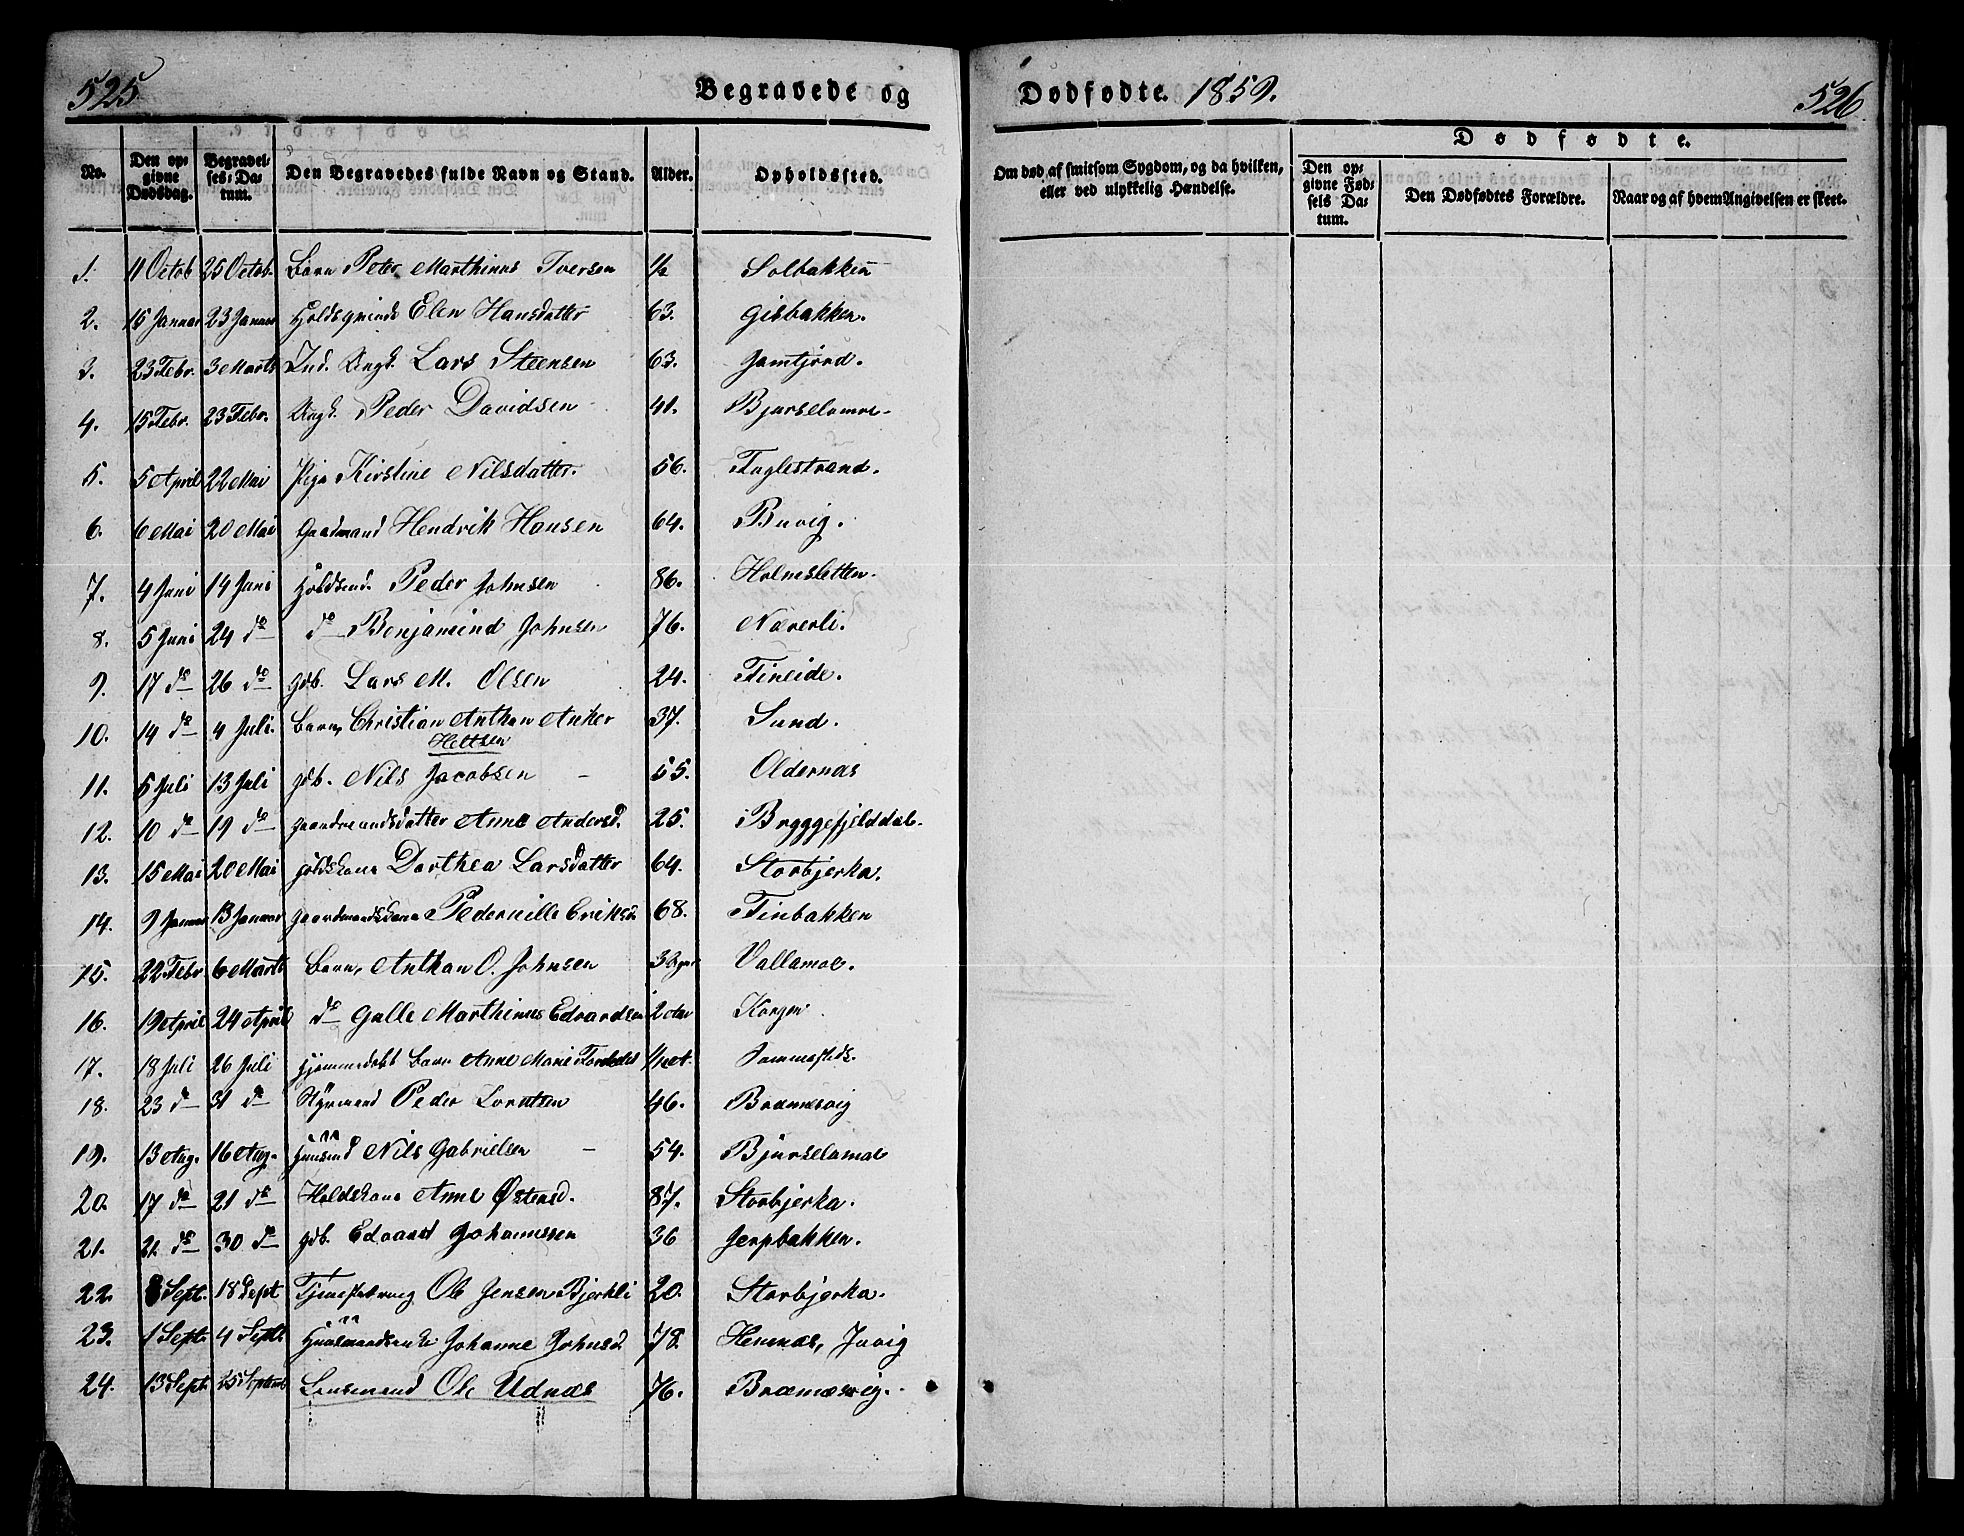 525 Begravede og Dødfødte. 1859. 526
No. Den opgivne Dødsdag. Begravelses-Datum. Den Begravedes fulde Navn og Stand. Alder. Opholdssted. Om død af smitsom Sygdom, og da hvilken, eller ved ulykkelig Hændelse. Dødfødte. Den opgivne Fødsels Datum. Den Dødfødtes Forældre. Naar og af hvem Angivelsen er skeet.
1. 11 Octob 25 Octob. Barn Peter Marthinus Iversen 1/2 Solbakken
2. 15 Januar 23 Januar Holdsqvinde Elen Hansdatter 63. Gisbakken.
3. 23 Febr. 3 Marts Ind. Ungk. Lars Steensen 63. Jamtjord.
4. 15 Febr. 23 Febr. Ungk. Peder Davidsen 41. Bjurselamoe
5. 5 April 22 Mai Pige Kirstine Nilsdatter 56. Fuglestrand.
6. 6 Mai 20 Mai Gaardmand Hendrik Hansen 64. Buvig.
7. 4 Juni 14 Juni Holdsmd. Peder Johnsen 86. Holmsletten.
8. 5 Juni 24 do do Benjamind Johnsen 76. Næverli.
9. 17 do 26 do Gdb. Lars M. Olsen 24. Fineide.
10. 14 do 4 Juli. Barn, Christian Anthon Anker 37. Sund.
Heltsen
11. 5 Juli 13 Juli Gdb. Nils Jacobsen 55. Oldernæs
12. 10 do 19 do Gaardmandsdatter Anne Andersd. 25. Bryggefjelddal.
13. 15 Mai 20 Mai Holdskone Dorthea Larsdatter 64. Storbjerka.
14. 9 Januar 13 Januar Gaardmandskone Pedernille Eriksd 68. Finbakken
15. 22 Febr 6 Marts Barn, Anthon O. Johnsen 3 Vallamoe.
16. 19 April 24 April do Galle Marthinus Edvardsen 2 Korgen
17. 18 Juli 26 Juli Hjemmedøbt Barn Anne Marie
18. 23 do 31 do Styrmand Peder Lorntsen 46. Bræmesvig
19. 13 Aug. 16 Aug. Huusmd Nils Gabrielsen 54. Bjurselamoe
20. 17 do 21 do Holdskone Anne Østensd. 87. Storbjerka.
21. 21. do 30 do Gdb. Edvard Johannessen 36 Jerpbakken.
22. 8 Sept. 18 Sept Tjenestedreng Ole Jensen Bjerkli 20. Storbjerka.
23. 1 Sept. 4 Septb Huusmandsenke Johanne Johnsd 78. Hemnæs, Juvig
24. 13 Sept. 25 Septemb Lensmand Ole Udnæs 76. Bræmesvig.